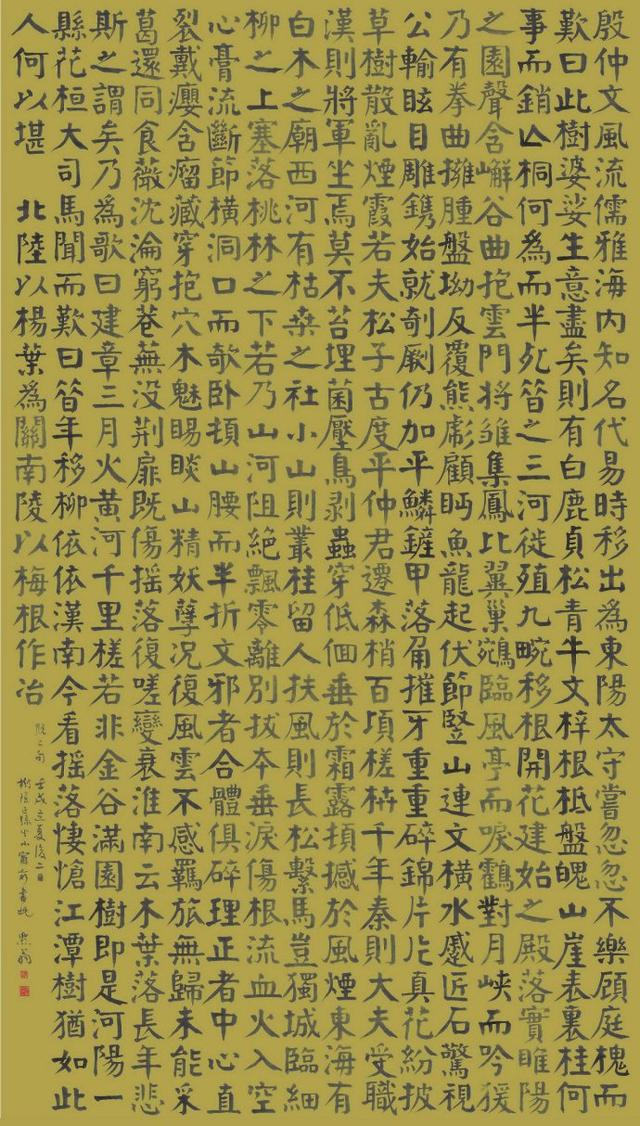 殷仲文風流儒雅海内知名代易時移出為東陽太守嘗忽忽不樂顧庭槐而
歎曰此樹婆娑生意盡矣則有白鹿貞松青牛文梓根柢盤魄山崖表裏桂何
事而銷亾桐何為而半死昝之三河徙殖九畹移根開花建始之殿落實睢陽
之園聲含嶰谷曲抱雲門将雏集鳳比翼巢鵷臨風亭而唳鶴對月峽而吟猨
乃有拳曲擁腫盤坳反覆熊彪顧眄魚龍起伏節竪山連文橫水蹙匠石驚視
公輸眩目雕鐫始就剞劂仍加平鱗鏟甲落角摧牙重重碎錦片片真花紛披
草樹散亂煙霞若夫松子古度平仲君遷森梢百頃槎枿千年秦則大夫受職
漢則將軍坐焉莫不苔埋菌壓鳥剥蟲穿低佪垂於霜露撼於風煙東海有
白木之廟西河有枯桑之社小山則叢桂留人扶風則長松繫馬豈獨城臨細
柳之上塞落桃林之下若乃山河阻絶飄零離別拔本垂淚傷根流血火入空
心膏流斷節橫洞口而欹卧頓山腰而半折文邪者合體俱碎理正者中心直
裂戴癭含瘤藏穿抱穴木魅睗睒山精妖孽況復風雲不感羈旅無歸未能采
葛還同食薇沈淪窮巷蕪没荆扉既傷揺落復嗟變衰淮南云木葉落長年悲
斯之謂矣乃為歌曰建章三月火黄河千里槎若非金谷滿園樹即是河陽一
縣花桓大司馬聞而歎曰昝年移柳依依漢南今看揺落悽愴江潭樹猶如此
人何以堪 北陸以楊葉為關南陵以梅根作冶
脱二句 壬戌立夏後二日